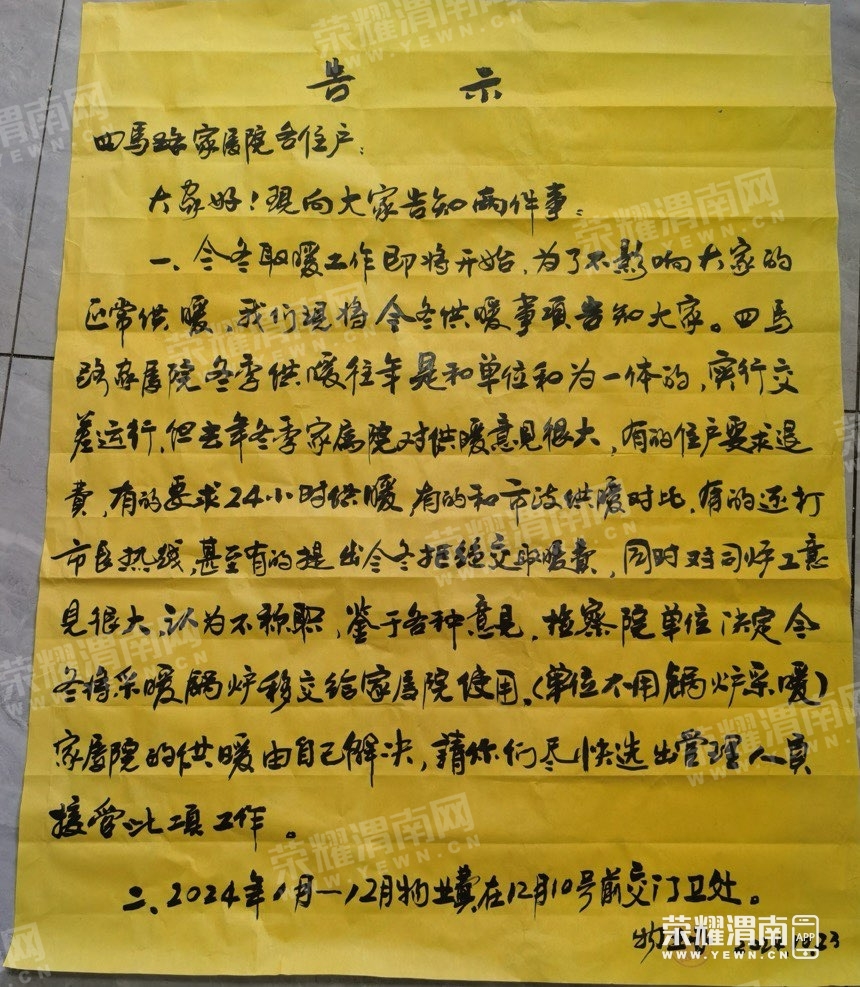 告 示
四馬路家属院各住户：
大家好！现向大家告知两件事：
一、今冬取暖工作即将开始，为了不影响大家的
正常供暖，我们现将今冬供暖事项告知大家。四馬
路家属院冬季供暖往年是和单位和为一体的，实行交
差运行，但去年冬季家属院对供暖意见很大，有的住户要求退
費，有的要求24小时供暖，有的和市政供暖对比，有的还打
市长热线，甚至有的提出今冬拒绝交取暖費，同时对司炉工意
见很大，认为不称职，鉴于各种意见，检察院单位决定今
冬将采暖锅炉移交给家居院使用。（单位不用锅炉采暖）
家居院的供暖由自己解决，請你们尽快选出管理人員
接管此项工作。
二、2024年1月—12月物业費在12月10号前交门卫处。
物业
荣耀渭南网
WWW.YEWN.CN
荣耀渭南
APP
WWW.YEWN.CN